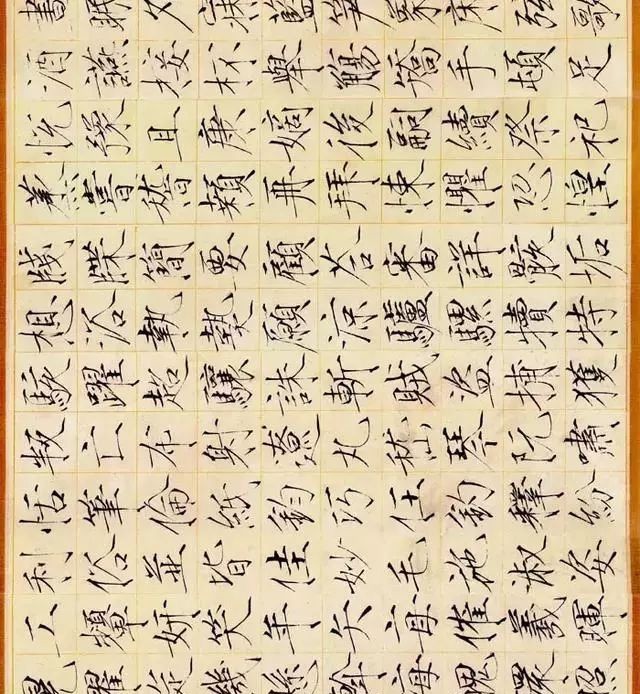 酒讌接杯舉觴矯手頓足
悅豫且康嫡後嗣續祭祀
蒸嘗稽顙再拜悚懼恐惶
牋牒簡要顧答審詳骸垢
想浴執熱願涼驢騾犢特
駭躍超驤誅斬賊盜捕獲
叛亡布射遼丸嵇琴阮嘯
恬筆倫紙鈞巧任釣釋紛
利俗並皆佳妙毛施淑姿
工嚬妍笑年矢每催羲暉